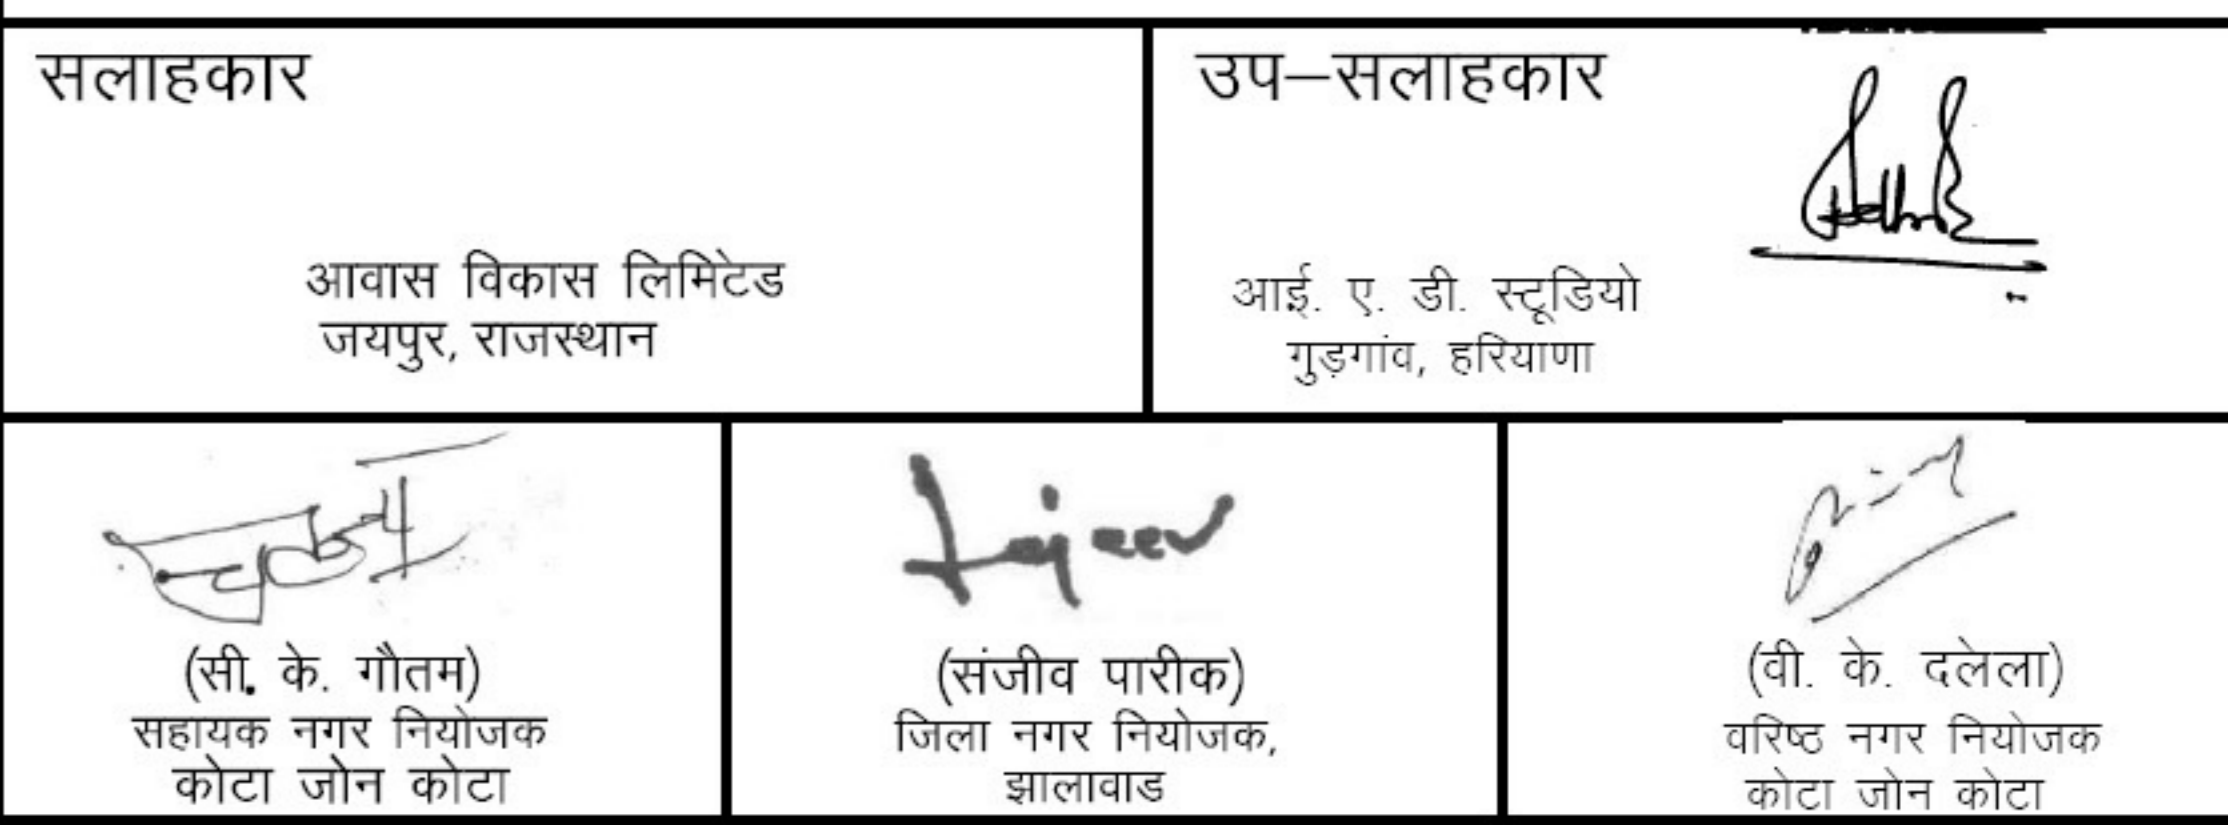 सलाहकार
आवास विकास लिमिटेड
जयपुर, राजस्थान
उप–सलाहकार
आई. ए. डी. स्टूडियो
गुड़गांव, हरियाणा
(सी. के. गौतम)
सहायक नगर नियोजक
कोटा जोन कोटा
(संजीव पारीक)
जिला नगर नियोजक,
झालावाड
(वी. के. दलेला)
वरिष्ठ नगर नियोजक
कोटा जोन कोटा